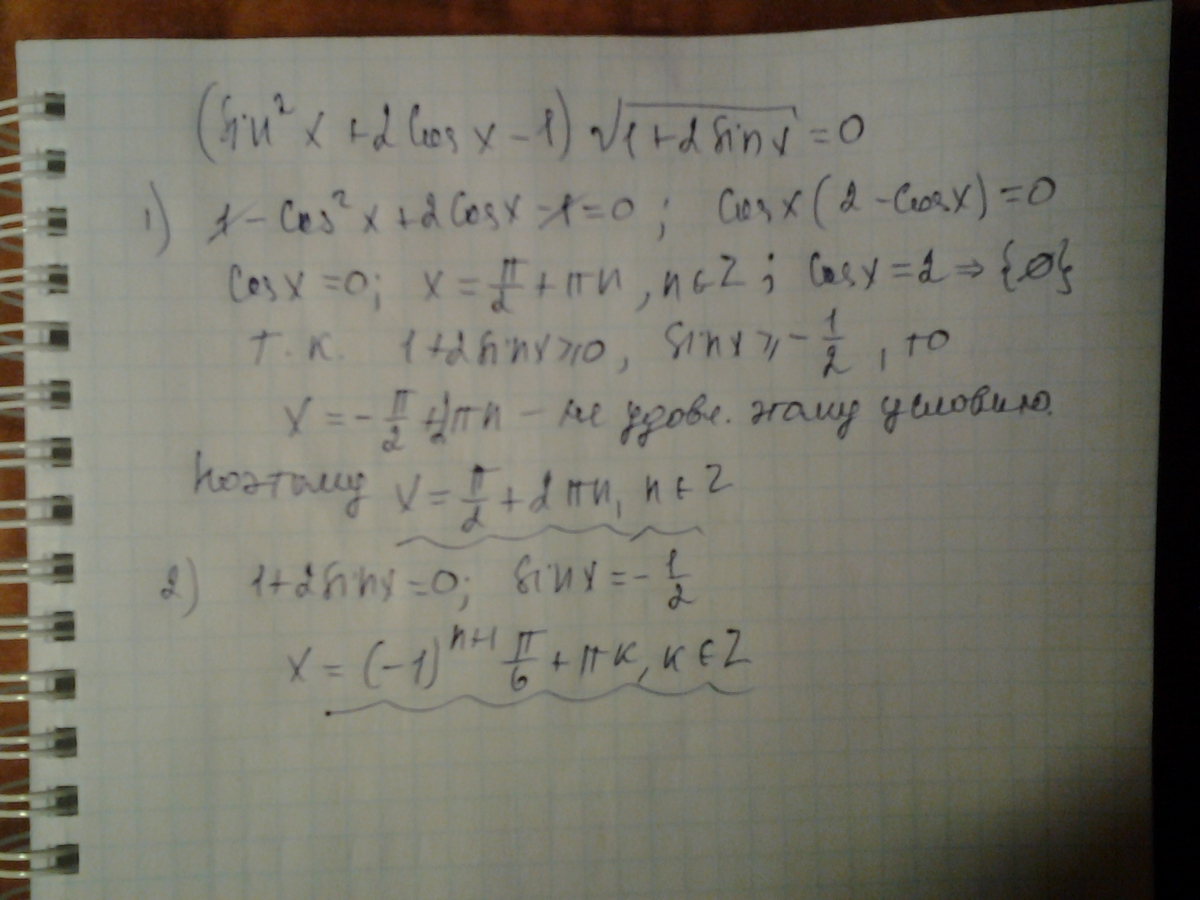 (Sin² x + 2 Cos x - 1) √(1 + 2 Sin x) = 0
1) 1 - Cos² x + 2 Cos x - 1 = 0 ; Cos x (2 - Cos x) = 0
Cos x = 0; x = π/2 + πn, n ∈ Z ; Cos x = 2 ⇒ {∅}
т. к. 1 + 2 Sin x ≥ 0, Sin x ≥ -1/2, то
x = -π/2 + 2πn - не удовл. этому условию.
Поэтому x = π/2 + 2πn, n ∈ Z
2) 1 + 2 Sin x = 0; Sin x = -1/2
x = (-1)ⁿ⁺¹ π/6 + πк, к ∈ Z